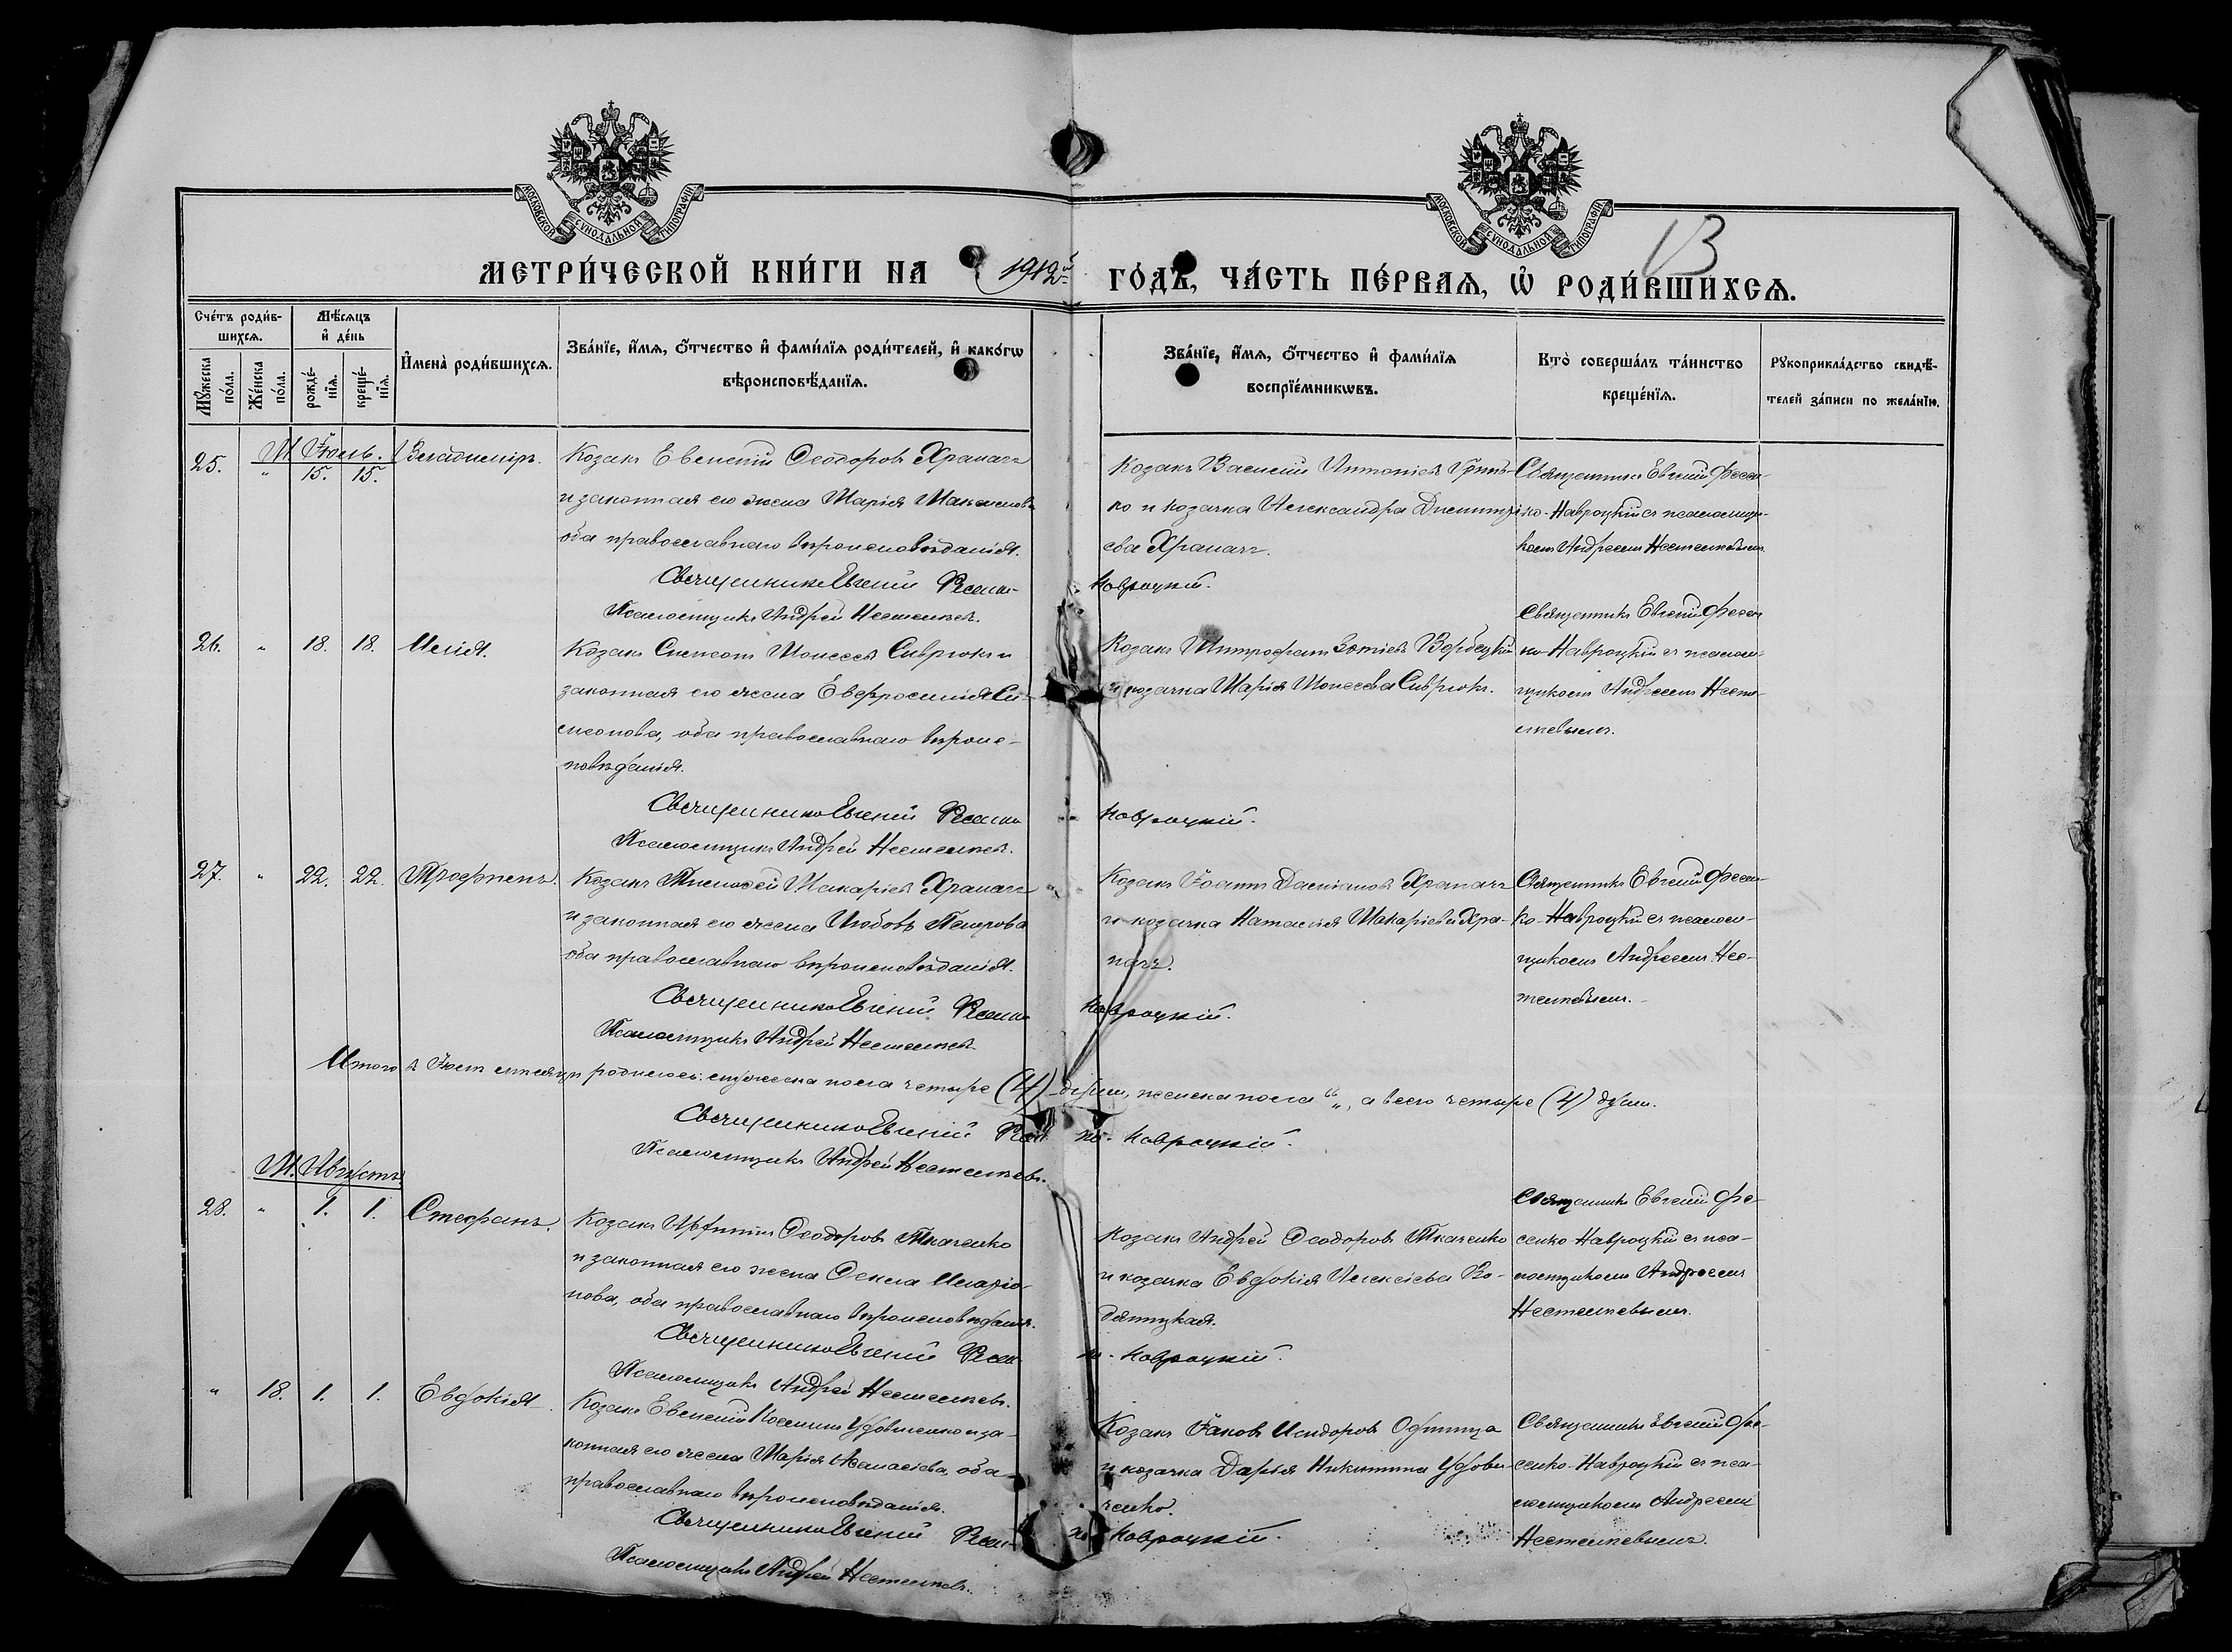 МОСКОВСКОЙ СѴНОДАЛЬНОЙ ТИПОГРАФІИ
МОСКОВСКОЙ СѴНОДАЛЬНОЙ ТИПОГРАФІИ
13
МЕТРИ́ЧЕСКОЙ КНИ́ГИ НА 1912й ГО́ДЪ, ЧА́СТЬ ПЕ́РВАѦ, Ѡ҆ РОДИ́ВШИХСѦ.
Сче́тъ роди́в-
шихсѧ.
Мꙋ́жеска
по́ла.
Же́нска
по́ла.
Мѣ́сѧцъ
и҆ де́нь
рожде́-
нїѧ.
креще́-
нїѧ.
И҆мена̀ роди́вшихсѧ.
Зва́нїе, и҆́мѧ, ѻ҆́тчество и҆ фами́лїѧ роди́телей, и҆ како́гѡ
вѣроисповѣ́данїѧ.
Зва́нїе, и҆́мѧ, ѻ҆́тчество и҆ фами́лїѧ
воспрїе́мникѡвъ.
Кто̀ соверша́лъ та́инство
креще́нїѧ.
Рꙋкоприкла́дство свидѣ́-
телей за́писи по жела́нїю.
М. Іюль.
25. " 15. 15. Владиміръ.
Козакъ Евгеній Ѳеодоровъ Храпачъ
и законная его жена Марія Максимова
оба православнаго вѣроисповѣданія.
Священникъ Евгеній Фесенко-
Псаломщикъ Андрей
Козакъ Василій Антоніевъ
ко и козачка Александра Димитрі-
ева Храпачъ.
Навроцкій.
Священникъ Евгеній Фесен-
ко-Навроцкій съ псаломщи-
комъ Андреемъ
26. " 18. 18. Илія.
Козакъ Симеонъ Моисеевъ Сиврюкъ и
законная его жена Евфросинія Си-
меонова, оба православнаго вѣроис-
повѣданія.
Священникъ Евгеній Фесенко
Псаломщикъ Андрей
Козакъ Митрофанъ Зотіевъ Вербицкій
и козачка Марія Моисеева Сиврюкъ.
Навроцкій.
Священникъ Евгеній Фесен
ко-Навроцкій съ псалом-
щикомъ Андреемъ
27. " 22. 22. Трофимъ.
Козакъ Тимоѳей Макаріевъ Храпачъ
и законная его жена Любовь Петрова
оба православнаго вѣроисповѣданія.
Священникъ Евгеній Фесенко
Псаломщикъ Андрей
Козакъ Іоаннъ Даміановъ Храпачъ
и козачка Наталія Макаріева Хра-
пачъ.
Навроцкій.
Священникъ Евгеній Фесен-
ко-Навроцкій съ псалом-
щикомъ Андреемъ
Итого въ Іюлѣ мѣсяцѣ родилось: мужеска пола четыре (4) души, женска пола "„, а всего четыре (4) души.
Священникъ Евгеній Фесен ко-Навроцкій.
Псаломщикъ Андрей
М. Августъ.
28. " 1. 1. Стефанъ.
Козакъ Ѳеодоровъ Ткаченко
и законная его жена Ѳекла Иларіо-
нова, оба православнаго вѣроисповѣданія.
Священникъ Евгеній Фесен-
Псаломщикъ Андрей
Козакъ Андрей Ѳеодоровъ Ткаченко
и козачка Евдокія Алексіева Во-
дяницкая.
ко-Навроцкій.
Священникъ Евгеній Фе-
сенко-Навроцкій съ пса-
ломщикомъ Андреемъ
" 18. 1. 1. Евдокія.
Козакъ Евгеній Косьминъ Удовиченко и за-
конная его жена Марія Аѳанасіева, оба
православнаго вѣроисповѣданія.
Священникъ Евгеній Фесен-
Псаломщикъ Андрей
Козакъ Іаковъ Исидоровъ Одиница
и козачка Дарія Никитина Удови-
ченко.
ко-Навроцкій.
Священникъ Евгеній Фе-
сенко-Навроцкій съ пса-
ломщикомъ Андреемъ